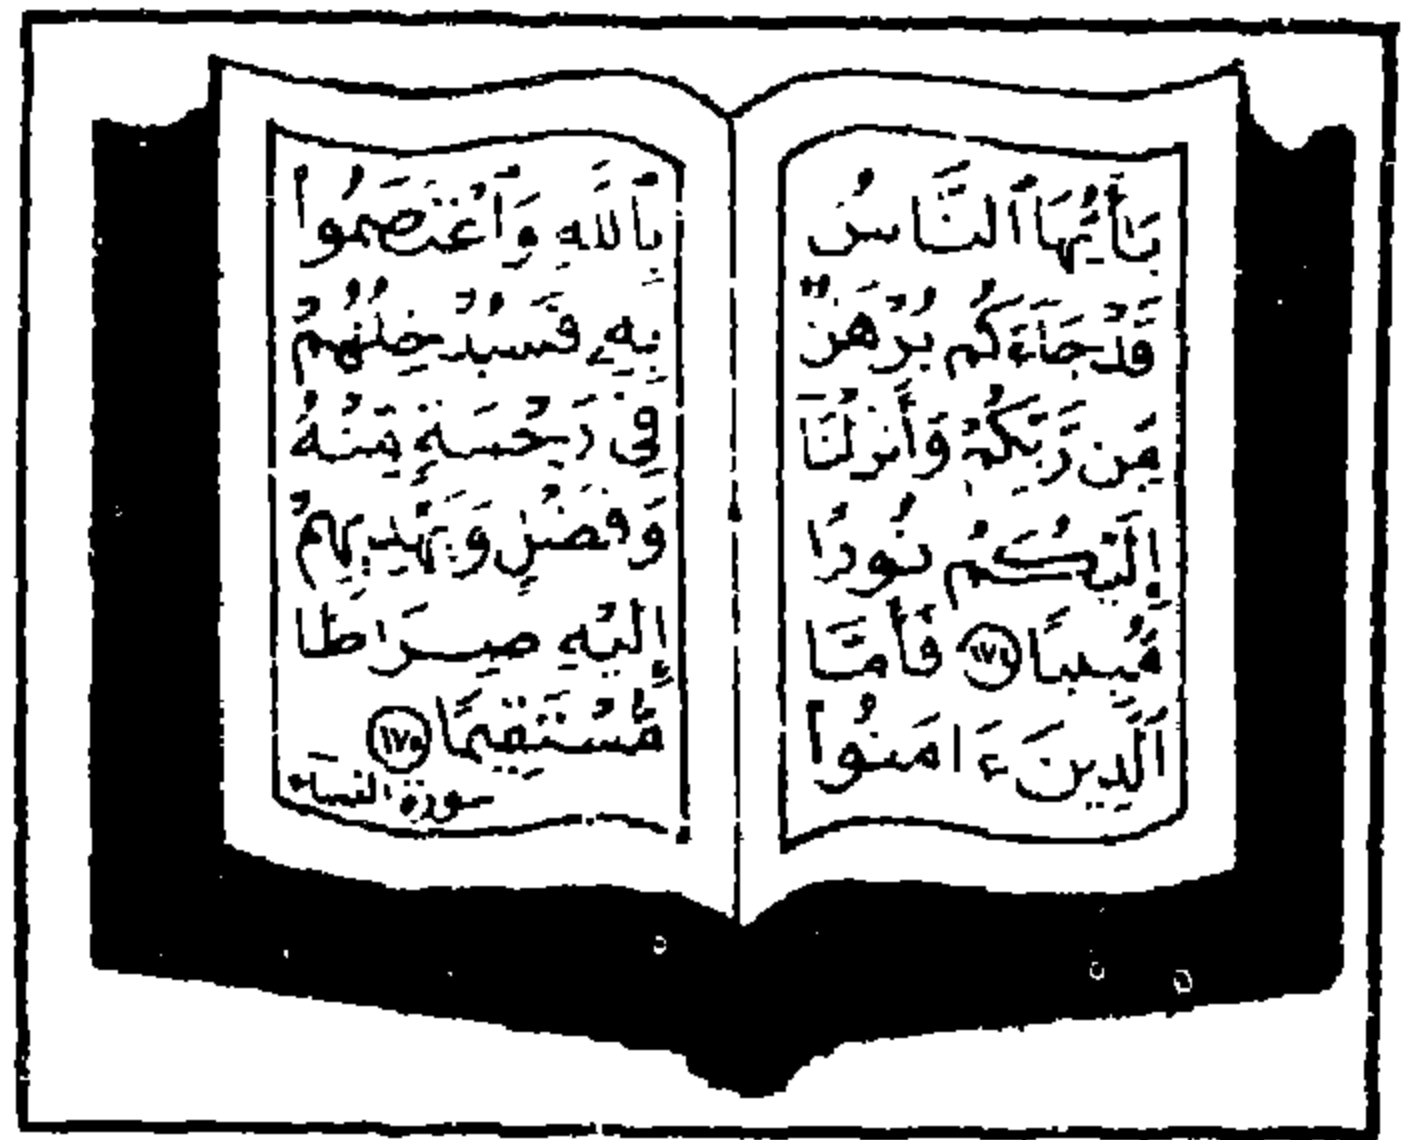 يَـٰٓأَيُّهَا ٱلنَّاسُ
قَدۡ جَآءَكُم بُرۡهَـٰنٞ
مِّن رَّبِّكُمۡ وَأَنزَلۡنَآ
إِلَيۡكُمۡ نُورٗا
مُّبِينٗا ١٧٤ فَأَمَّا
ٱلَّذِينَ ءَامَنُواْ
بِٱللَّهِ وَٱعۡتَصَمُواْ
بِهِۦ فَسَيُدۡخِلُهُمۡ
فِي رَحۡمَةٖ مِّنۡهُ
وَفَضۡلٖ وَيَهۡدِيهِمۡ
إِلَيۡهِ صِرَٰطٗا
مُّسۡتَقِيمٗا ١٧٥
سورة النساء